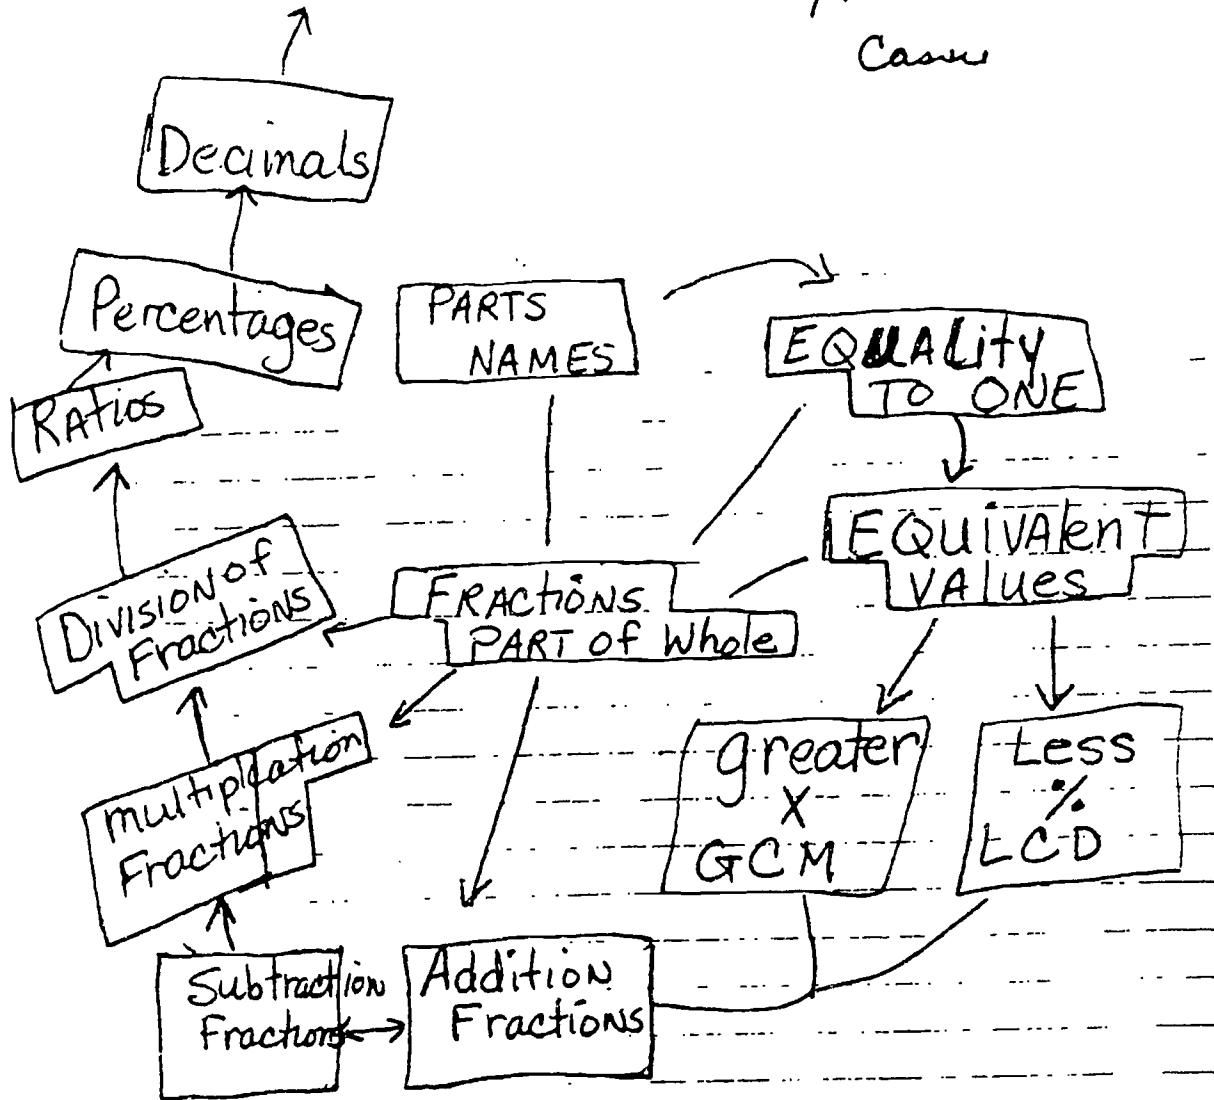 Decimals
Percentages
PARTS
NAMES
EQUALity
TO ONE
RAtios
EQUiVAlenT
VAlues
Division of
Fractions
FRACtiONS
PART of Whole
multiplication
Fractions
greater
X
GCM
Less
%
LCD
Subtraction
Fractions
Addition
Fractions